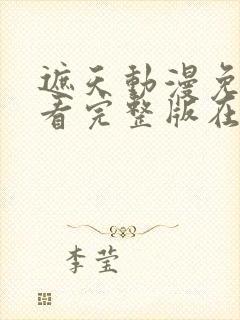 遮天動漫免
看完整版在
李莹